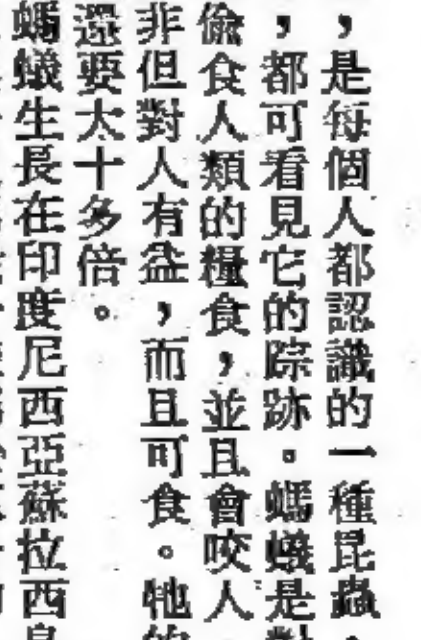 ，是每個人都認識的一種昆蟲
，都可看見它的踪跡。螞蟻是對
偸食人類的糧食，並且會咬人
非但對人有益，而且可食。牠的
還要太十多倍。
螞蟻生長在印度尼西亞蘇拉西島